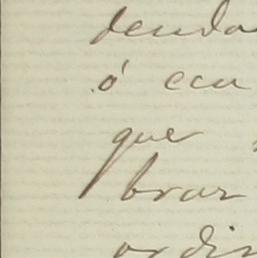 denda
ó ecu
que
brar
ordin